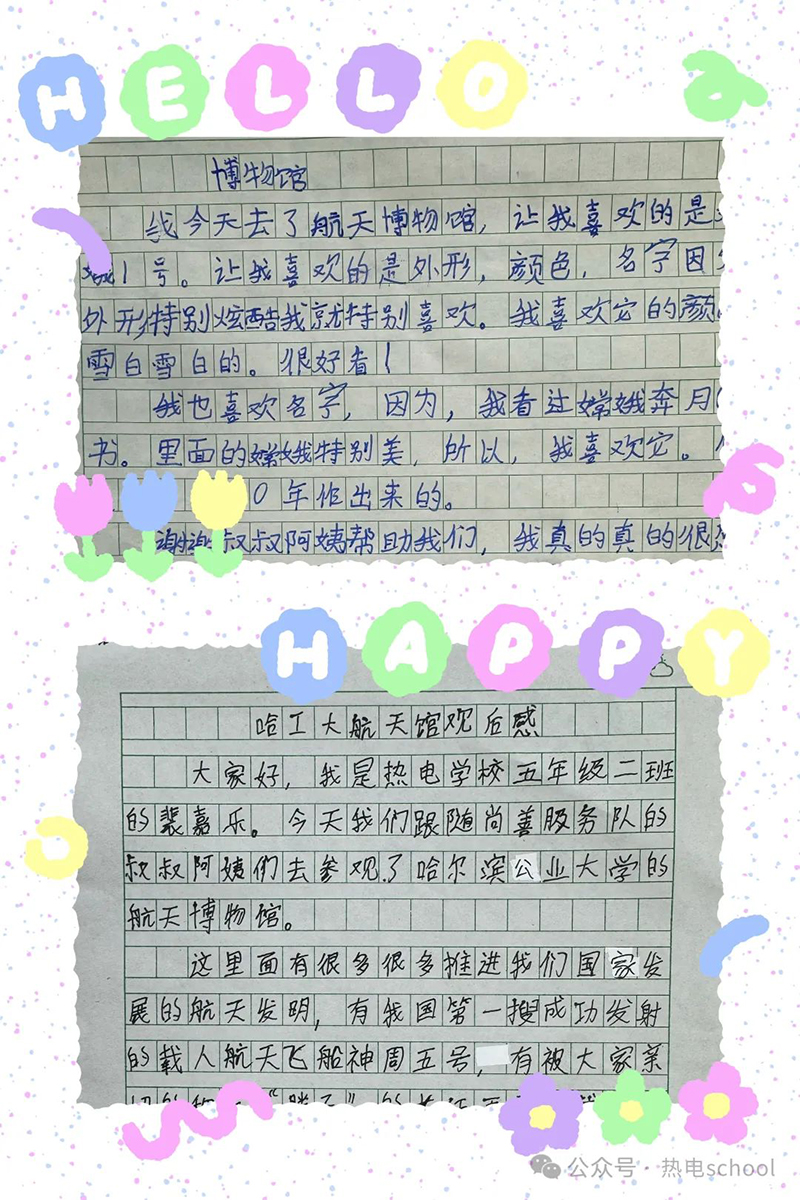 HELLO
博物馆
我今天去了航天博物馆，让我喜欢的是
娥1号。让我喜欢的是外形，颜色，名字因
外形特别炫酷我就特别喜欢。我喜欢它的颜
雪白雪白的。很好看！
我也喜欢名字，因为，我看过嫦娥奔月
书。里面的嫦娥特别美，所以，我喜欢它。
0年作出来的。
谢谢叔叔阿姨帮助我们，我真的真的很
HAPPY
哈工大航天馆观后感
大家好，我是热电学校五年级二班
的裴嘉乐。今天我们跟随尚善服务队的
叔叔阿姨们去参观了哈尔滨公业大学的
航天博物馆。
这里面有很多很多推进我们国家发
展的航天发明，有我国第一搜成功发射
的载人航天飞船神周五号，有被大家亲
公众号·热电school